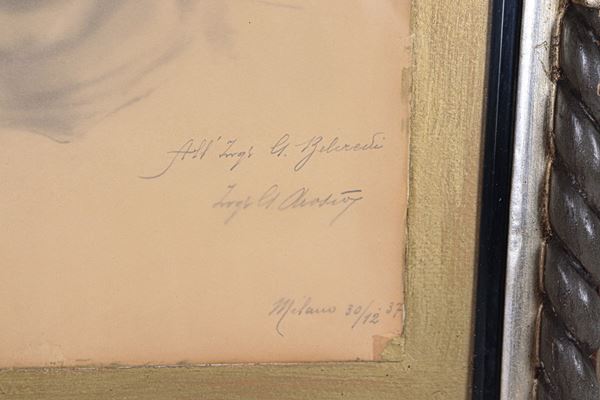 All' Ing. G. Belcredi
Ing. G. Arosio
Milano 30/12 37